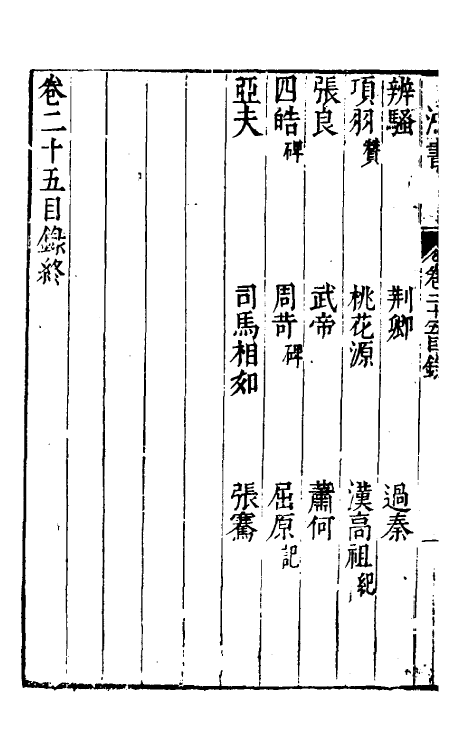 卷二十五目錄
一
辨騷 荆卿 過秦
項羽贊 桃花源 漢高祖紀
張良 武帝 蕭何
四皓碑 周苛碑 屈原記
亞夫 司馬相如 張騫
卷二十五目錄終